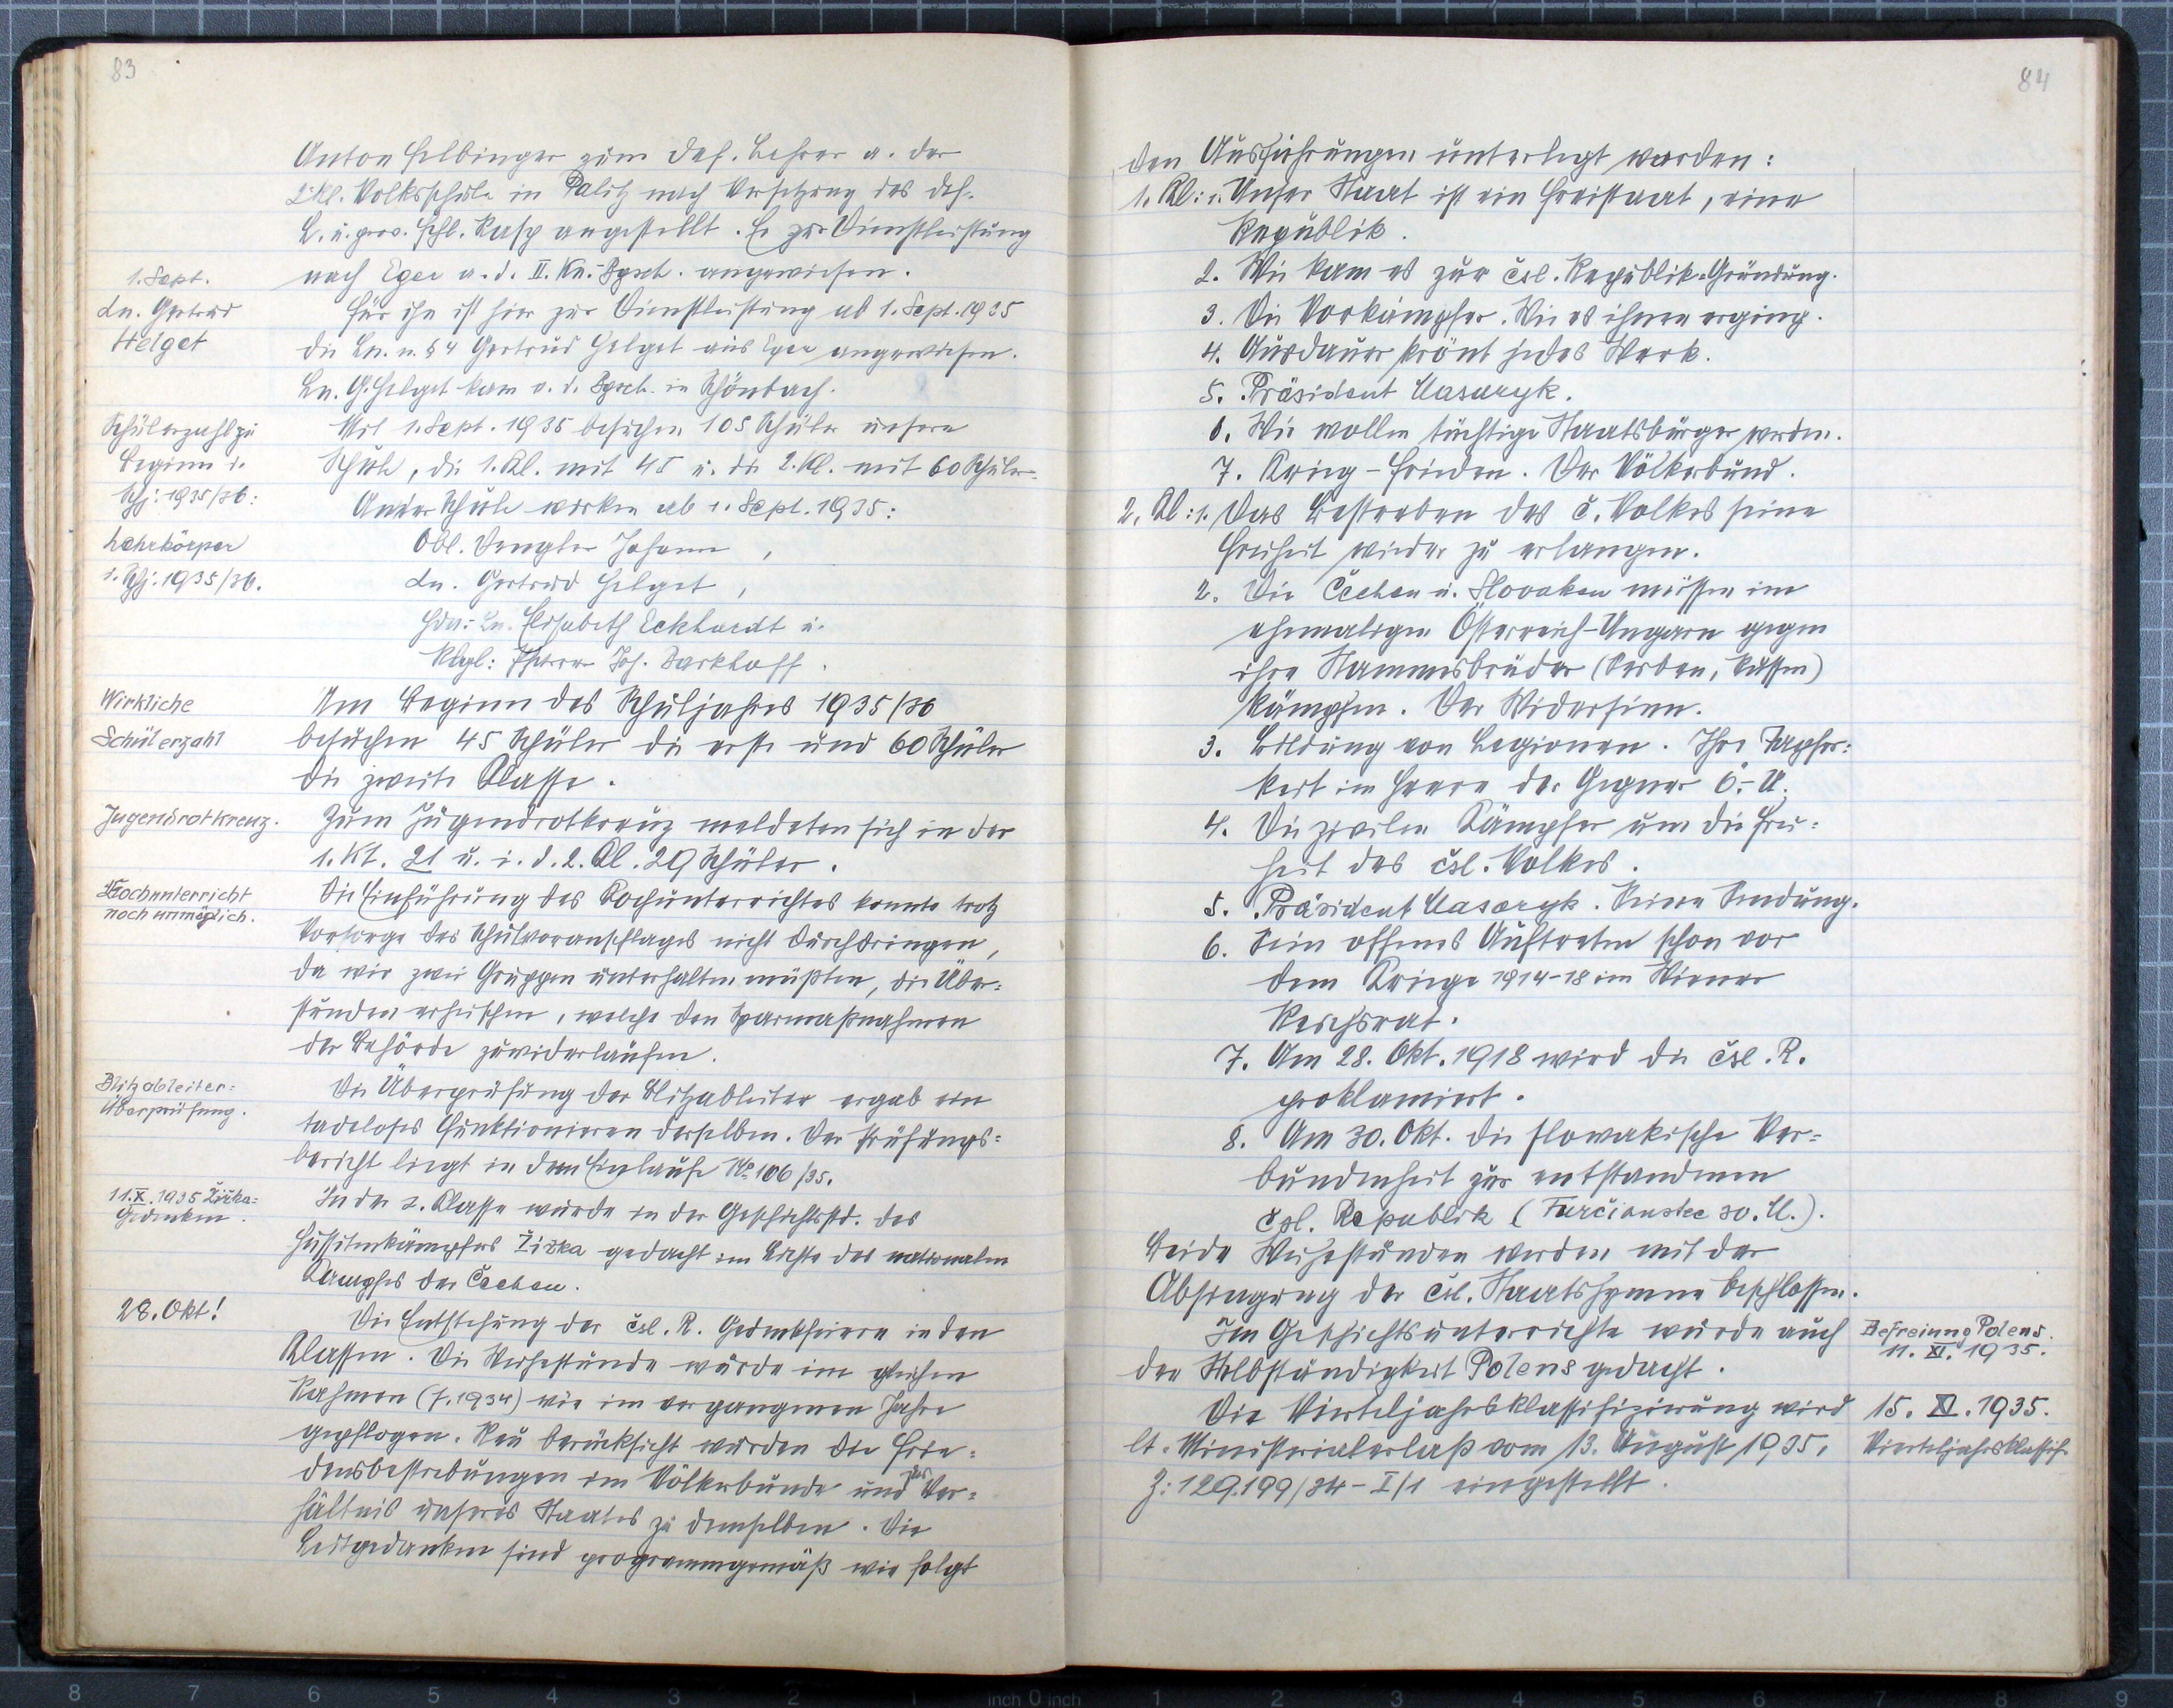 83
Anton Helbinger zum def. Lehrer a. der
2kl. Volksschule in Palitz nach Versetzung des def.
L. u. prov. Schl. Rasp angestellt. Er zur Dienstleistung
nach Eger a. d. II. Kn.-Bgsch. angewiesen.
1. Sept.
Ln. Gertrud
Helget
Für ihn ist hier zur Dienstleistung ab 1. Sept. 1935
die Ln. n. § 4 Gertrud Helget aus Eger angewiesen.
Ln. G. Helget kam v. d. Bgsch. in Schönbach.
Schülerzahl zu
Beginn d.
Schj. 1935/36:
Mit 1. Sept. 1935 besuchen 105 Schüler unsere
Schule, die 1. Kl. mit 45 u. die 2. Kl. mit 60 Schüler.
Lehrkörper
i. Schj. 1935/36.
An der Schule wirken ab 1. Sept. 1935:
Obl. Dengler Johann,
Ln. Gertrud Helget,
Hdn.-Ln. Elisabeth Eckhardt u.
Rlgl: Pfarrer Joh. Barkhoff.
Wirkliche
Schülerzahl
Am Beginn des Schuljahres 1935/36
besuchen 45 Schüler die erste und 60 Schüler
die zweite Klasse.
Jugendrotkreuz.
Zum Jugendrotkreuz meldeten sich in der
1. Kl. 21 u. i. d. 2. Kl. 29 Schüler.
Kochunterricht
noch unmöglich.
Die Einführung des Kochunterrichtes konnte trotz
Vorsorge des Schulvoranschlages nicht durchdringen,
da wir zwei Gruppen unterhalten müßten, die Über=
stunden erheischen, welche den Sparmaßnahmen
der Behörde zuwiderlaufen.
Blitzableiter=
Überprüfung.
Die Überprüfung der Blitzableiter ergab ein
tadeloses Funktionieren derselben. Der Prüfungs=
bericht liegt in dem Einlaufe No 106/35.
11. X. 1935 Žižka=
Gedenken.
In der 2. Klasse wurde in der Geschichtsstd. des
Hussitenkämpfers Žižka gedacht im Lichte des nationalen
Kampfes der Čechen.
28. Okt!
Die Entstehung der čsl. R. Gedenkfeiern in den
Klassen. Die Weihestunde wurde im gleichen
Rahmen (s. 1934) wie im vergangenen Jahre
gepflogen. Neu berücksicht wurden die Frie=
densbestrebungen im Völkerbunde und das Ver=
hältnis unseres Staates zu demselben. Die
Leitgedanken sind programmgemäß wie folgt
84
den Ausführungen unterlegt worden:
1. Kl: 1. Unser Staat ist ein Freistaat, eine
Republik.
2. Wie kam es zur čsl. Republik-Gründung.
3. Die Vorkämpfer. Wie es ihnen erging.
4. Ausdauer krönt jedes Werk.
5. Präsident Masaryk.
6. Wir wollen tüchtige Staatsbürger werden.
7. Krieg – Frieden. Der Völkerbund.
2. Kl: 1. Das Bestreben des č. Volkes seine
Freiheit wieder zu erlangen.
2. Die Čechen u. Slovaken müssen im
ehemaligen Österreich-Ungarn gegen
ihre Stammesbrüder (Serben, Russen)
kämpfen. Der Widersinn.
3. Bildung von Legionen. Ihre Tapfer=
keit im Heere der Gegner Ö.-U.
4. Die zivilen Kämpfer um die Frei=
heit des čsl. Volkes.
5. Präsident Masaryk. Seine Sendung.
6. Sein offenes Auftreten schon vor
dem Kriege 1914–18 im Wiener
Reichsrat.
7. Am 28. Okt. 1918 wird die čsl. R.
proklamiert.
8. Am 30. Okt. die slowakische Ver=
bundenheit zur entstandenen
čsl. Republik (Turčianstec 30. U.).
Beide Weihestunden werden mit der
Absingung der čsl. Staatshymne beschlossen.
Im Geschichtsunterrichte wurde auch
der Selbständigkeit Polens gedacht.
Befreiung Polens.
11. XI. 1935.
Die Vierteljahrsklassifizierung wird
lt. Ministerialerlaß vom 13. August 1935,
Z: 129.199/34 – I/1 eingestellt.
15. XI. 1935.
Vierteljahrsklassif.
8 7 6 5 4 3 2 1 inch 0 inch 1 2 3 4 5 6 7 8 9